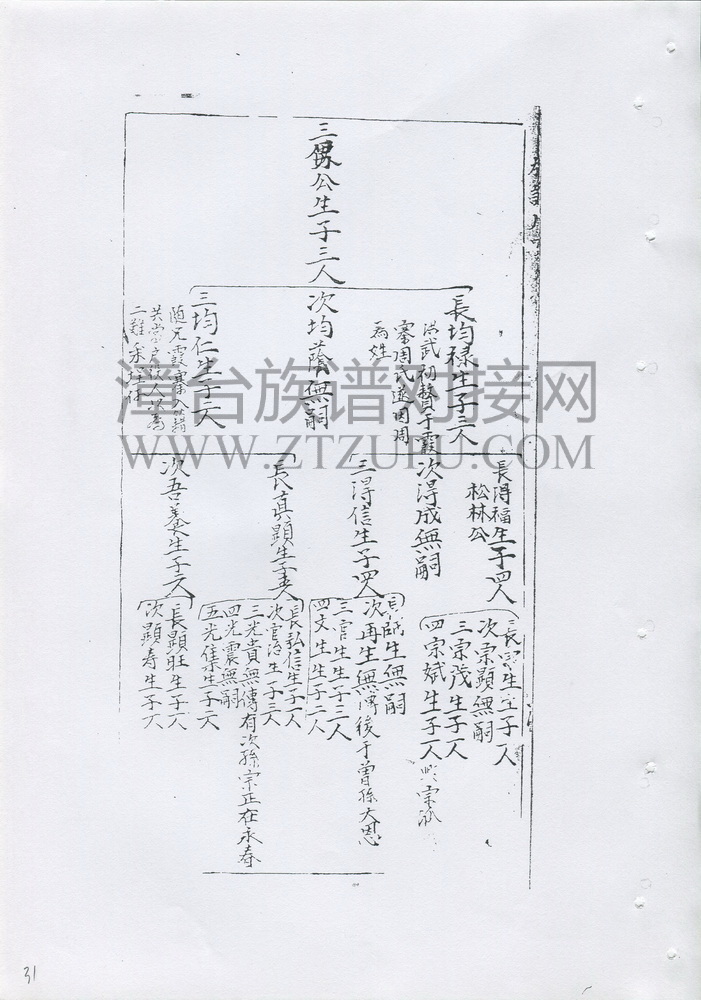 三公生子三人
長均禄生子三人
洪武初贅于霞
寨周氏遂因周
為姓
次均蔭無嗣
三均仁生子二人
随兄霞寨入籍
長得福生子四人
松林公
次得成無嗣
三得信生子四人
長真顯生子五人
次吾養生子二人
長生子一人
次宗顯無嗣
三宗茂生子一人
四宗斌生子一人
長生無嗣
次再生無傳後于曾孫大恩
三官生生子三人
四文生生子二人
長弘信生子一人
次官生子三人
三光貴無傳有次孫宗正在永春
四光震無嗣
五光集生子二人
長顯旺生子一人
次顯寿生子一人
漳台族谱对接网
WWW.ZTZUPU.COM
31